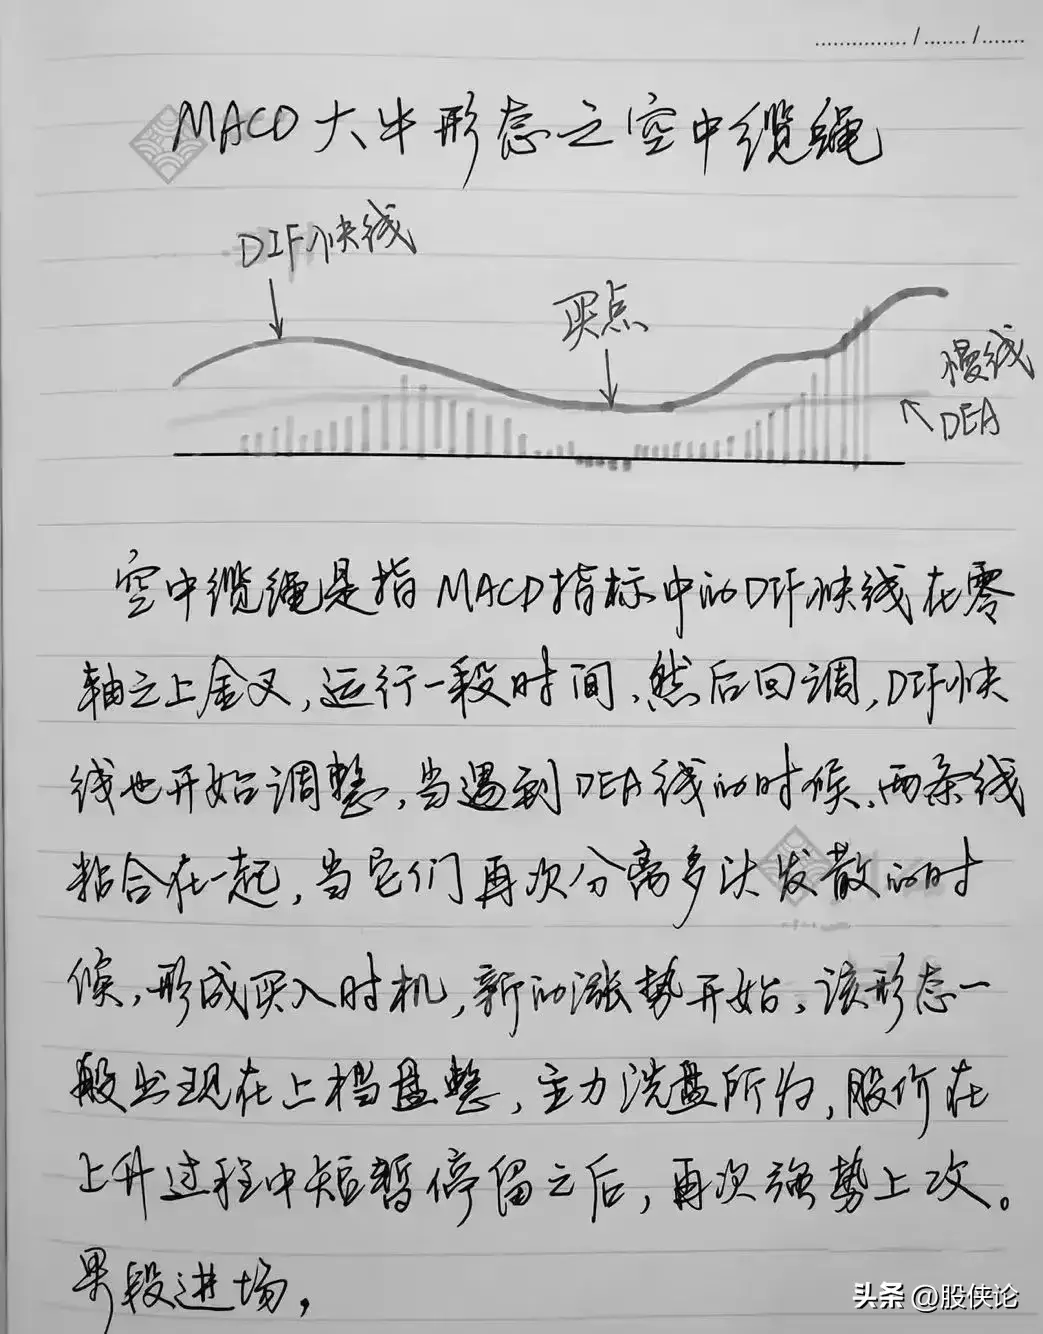 ................/......../........
MACD大牛形态之空中缆绳
DIF快线
买点
慢线
DEA
空中缆绳是指MACD指标中的DIF快线在零
轴之上金叉,运行一段时间,然后回调,DIF快
线也开始调整,当遇到DEA线的时候,两条线
粘合在一起,当它们再次分离多头发散的时
候,形成买入时机,新的涨势开始,该形态一
般出现在上档盘整,主力洗盘所为,股价在
上升过程中短暂停留之后,再次强势上攻。
果段进场,
头条 @股侠论